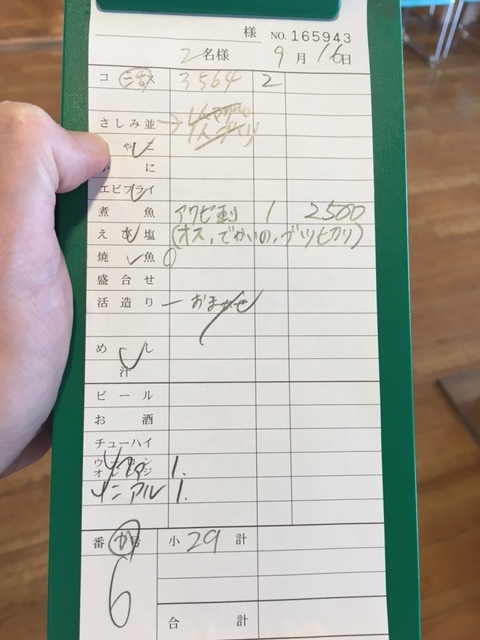 様 NO. 165943
2名様 9月16日
コース 3564 2
さしみ並
エビフライ
煮魚 アワビ刺 1 2500
え 塩 (オス、でかいの、ブツ切り)
焼魚
盛合せ
活造り ー おまかせ
めし
汁
ビール
お酒
チューハイ
1.
ノンアル 1.
番号 小 29 計
6
合計